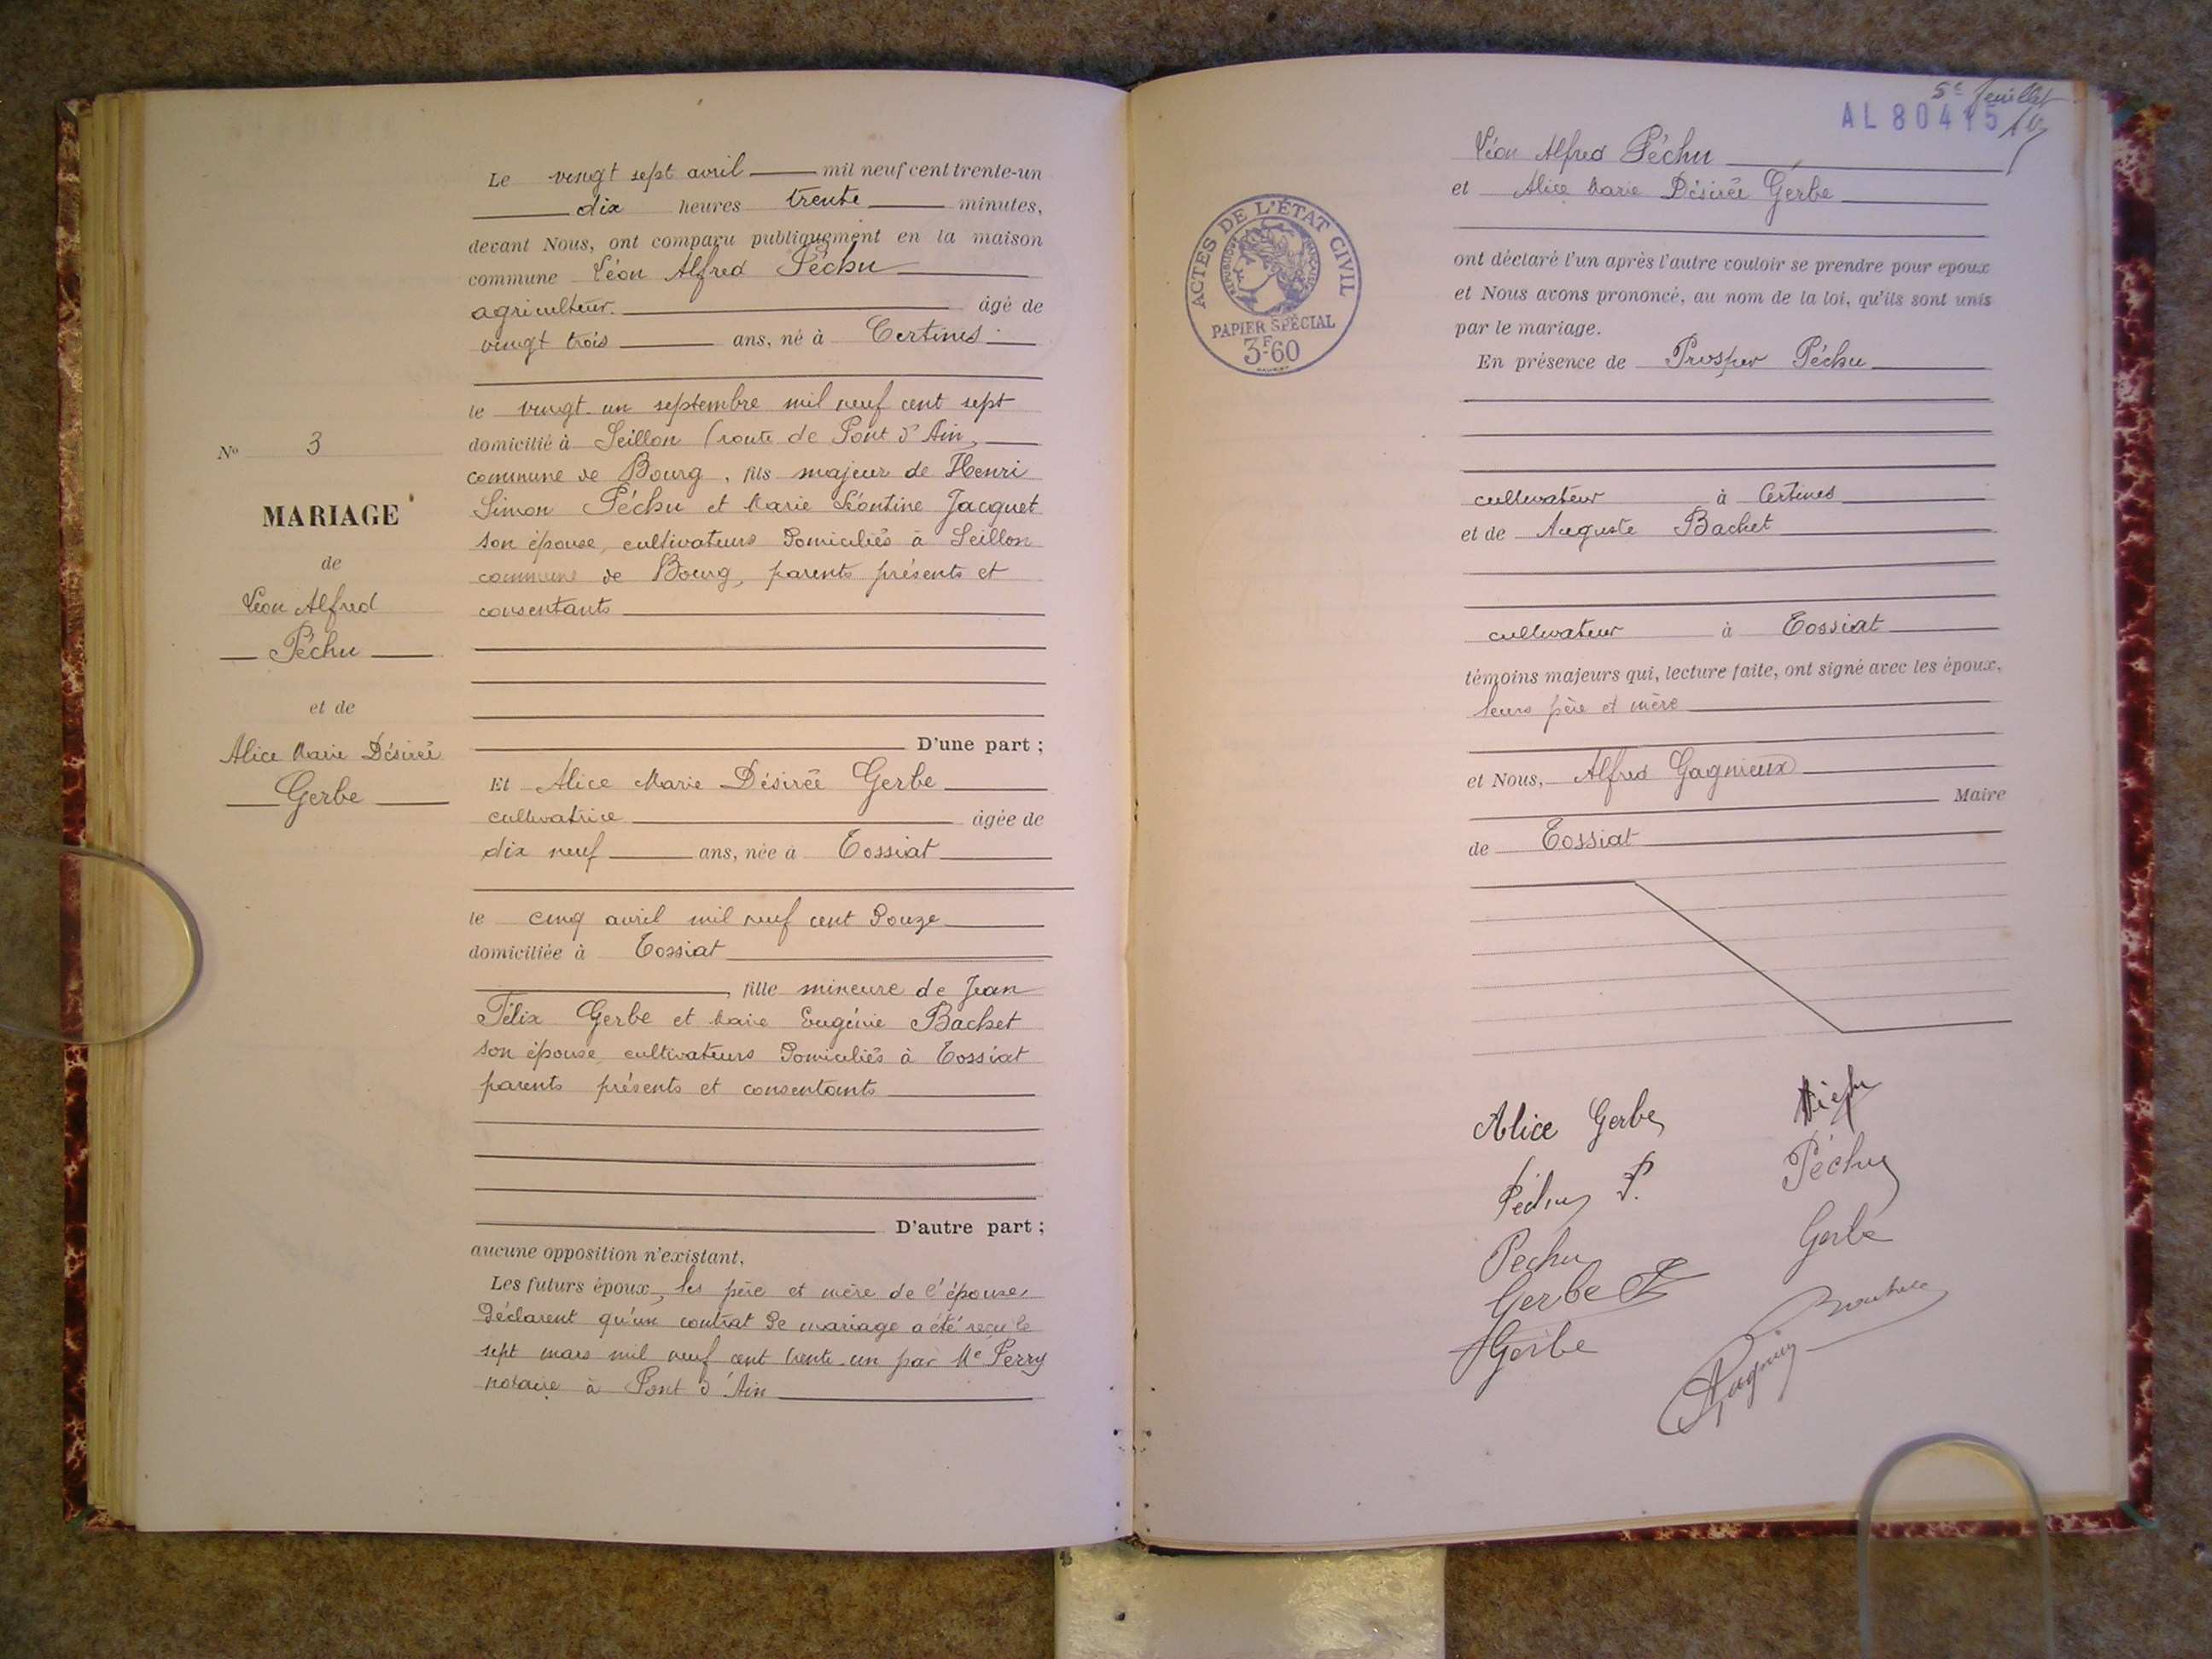 Le vingt sept avril mil neuf cent trente-un
dix heures trente minutes,
devant Nous, ont comparu publiquement en la maison
commune Léon Alfred Péchu
agriculteur. âgé de
vingt trois ans, né à Certines
le vingt-un septembre mil neuf cent sept
domicilié à Seillon (route de Pont d'Ain,
commune de Bourg, fils majeur de Henri
Simon Péchu et Marie Léontine Jacquet
son épouse, cultivateurs domiciliés à Seillon
commune de Bourg, parents présents et
consentants
D'une part ;
Et Alice Marie Désirée Gerbe
cultivatrice âgée de
dix neuf ans, née à Tossiat
le cinq avril mil neuf cent douze
domiciliée à Tossiat
, fille mineure de Jean
Félix Gerbe et Marie Eugénie Bachet
son épouse, cultivateurs domiciliés à Tossiat
parents présents et consentants
D'autre part ;
aucune opposition n'existant,
Les futurs époux, les père et mère de l'épouse,
déclarent qu'un contrat de mariage a été reçu le
sept mars mil neuf cent trente-un par Me Perry
notaire à Pont d'Ain
No 3
MARIAGE
de
Léon Alfred
Péchu
et de
Alice Marie Désirée
Gerbe
5e feuillet
AL 80415
Léon Alfred Péchu
et Alice Marie Désirée Gerbe
ont déclaré l'un après l'autre vouloir se prendre pour epoux
et Nous avons prononcé, au nom de la loi, qu'ils sont unis
par le mariage.
En présence de Prosper Péchu
cultivateur à Certines
et de Auguste Bachet
cultivateur à Tossiat
témoins majeurs qui, lecture faite, ont signé avec les époux,
leurs père et mère
et Nous, Alfred Gagnieux
Maire
de Tossiat
ACTES DE L'ÉTAT CIVIL
RÉPUBLIQUE FRANÇAISE
PAPIER SPÉCIAL
3F-60
Alice Gerbe
Péchu P.
Péchu
Pechu
Gerbe
Gerbe
Gerbe